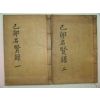 己卯名賢錄 二
己卯名賢錄 一